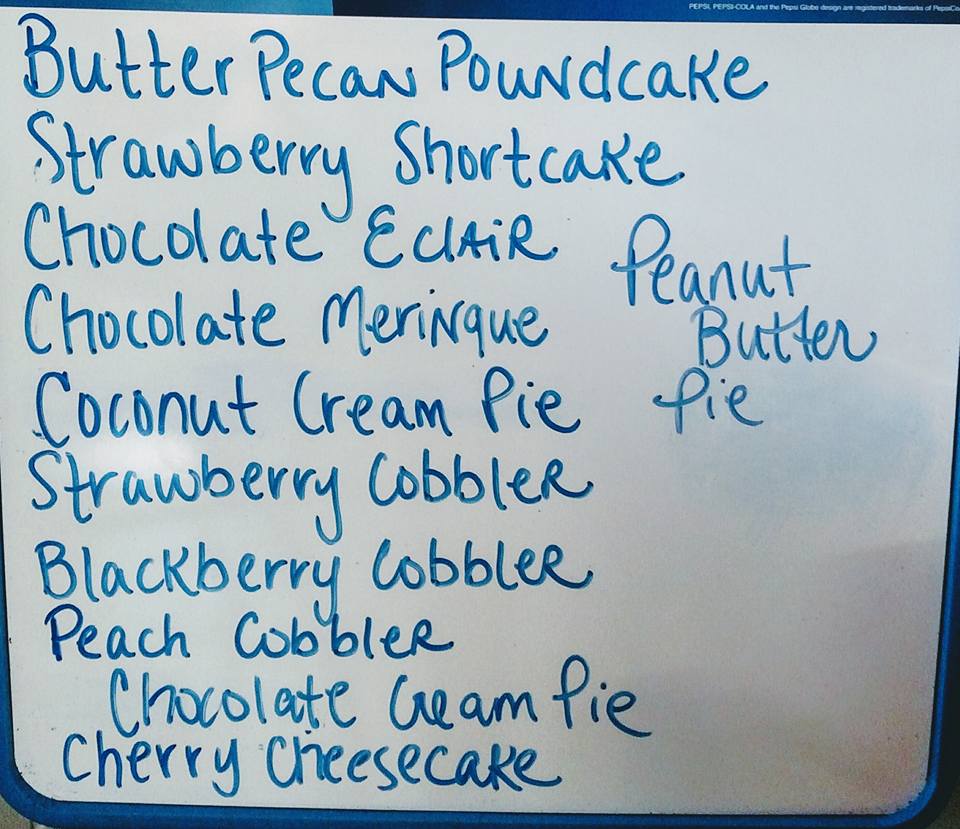 PEPSI, PEPSI-COLA and the Pepsi Globe design are registered trademarks of PepsiCo
Butter Pecan Poundcake
Strawberry Shortcake
Chocolate Eclair
Chocolate Merinque
Coconut Cream Pie
Strawberry Cobbler
Blackberry Cobbler
Peach Cobbler
Chocolate Cream Pie
Cherry Cheesecake
Peanut
Butter
Pie